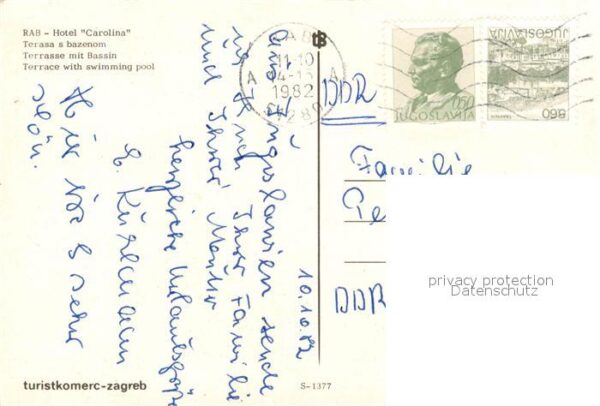 RAB - Hotel "Carolina"
Terasa s bazenom
Terrasse mit Bassin
Terrace with swimming pool
10.10.82
Aus Jugoslawien sende
ich Ihnen Ihrer Familie
und Ihrer Mutter
herzliche Urlaubsgrüße
E.
Hier ist es sehr
schön.
turistkomerc-zagreb
S-1377
RAB
11-10
1982
51280
JUGOSLAVIJA
0.50
JUGOSLAVIJA
0.60
DDR
Familie
DDR
privacy protection
Datenschutz